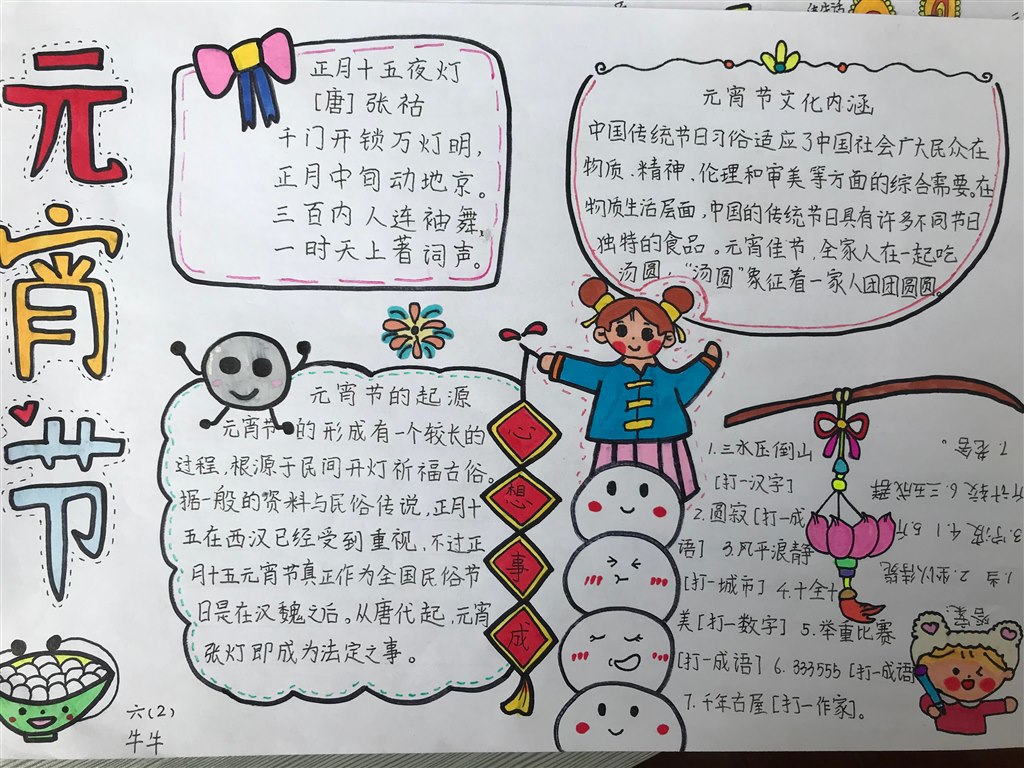 元宵节
正月十五夜灯
[唐]张祜
千门开锁万灯明,
正月中旬动地京。
三百内人连袖舞,
一时天上著词声。
元宵节文化内涵
中国传统节日习俗适应了中国社会广大民众在
物质、精神、伦理和审美等方面的综合需要。在
物质生活层面,中国的传统节日具有许多不同节日
独特的食品。元宵佳节,全家人在一起吃
汤圆,“汤圆”象征着一家人团团圆圆。
元宵节的起源
元宵节的形成有一个较长的
过程,根源于民间开灯祈福古俗。
据一般的资料与民俗传说,正月十
五在西汉已经受到重视,不过正
月十五元宵节真正作为全国民俗节
日是在汉魏之后。从唐代起,元宵
张灯即成为法定之事。
心想事成
1.三水压倒山
[打一汉字]
2.圆寂[打一成
语] 3.风平浪静
[打一城市] 4.十全十
美[打一数字] 5.举重比赛
[打一成语] 6.333555[打一成语]
7.千年古屋[打一作家]。
答案:
1.当 2.坐以待毙
3.宁波 4.1 5.斤
斤计较 6.三五成群
7.老舍。
六(2)
牛牛